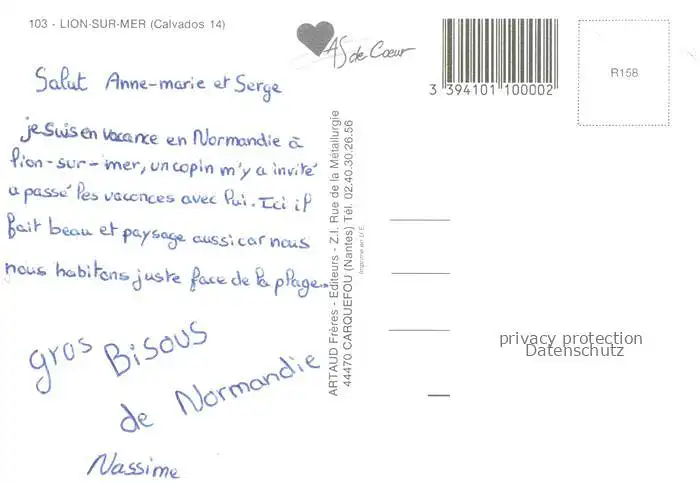 103 - LION-SUR-MER (Calvados 14)
AS de Cœur
3 394101 100002
R158
Salut Anne-marie et Serge
je suis en vacance en Normandie à
lion-sur-mer, un copin m'y a invité
a passé les vaconces avec lui. Ici il
fait beau et paysage aussi car nous
nous habitons juste face de la plage...
gros Bisous
de Normandie
Nassime
ARTAUD Frères - Editeurs - Z.I. Rue de la Métallurgie
44470 CARQUEFOU (Nantes) Tél. 02.40.30.26.56
Imprimé en U.E.
privacy protection
Datenschutz